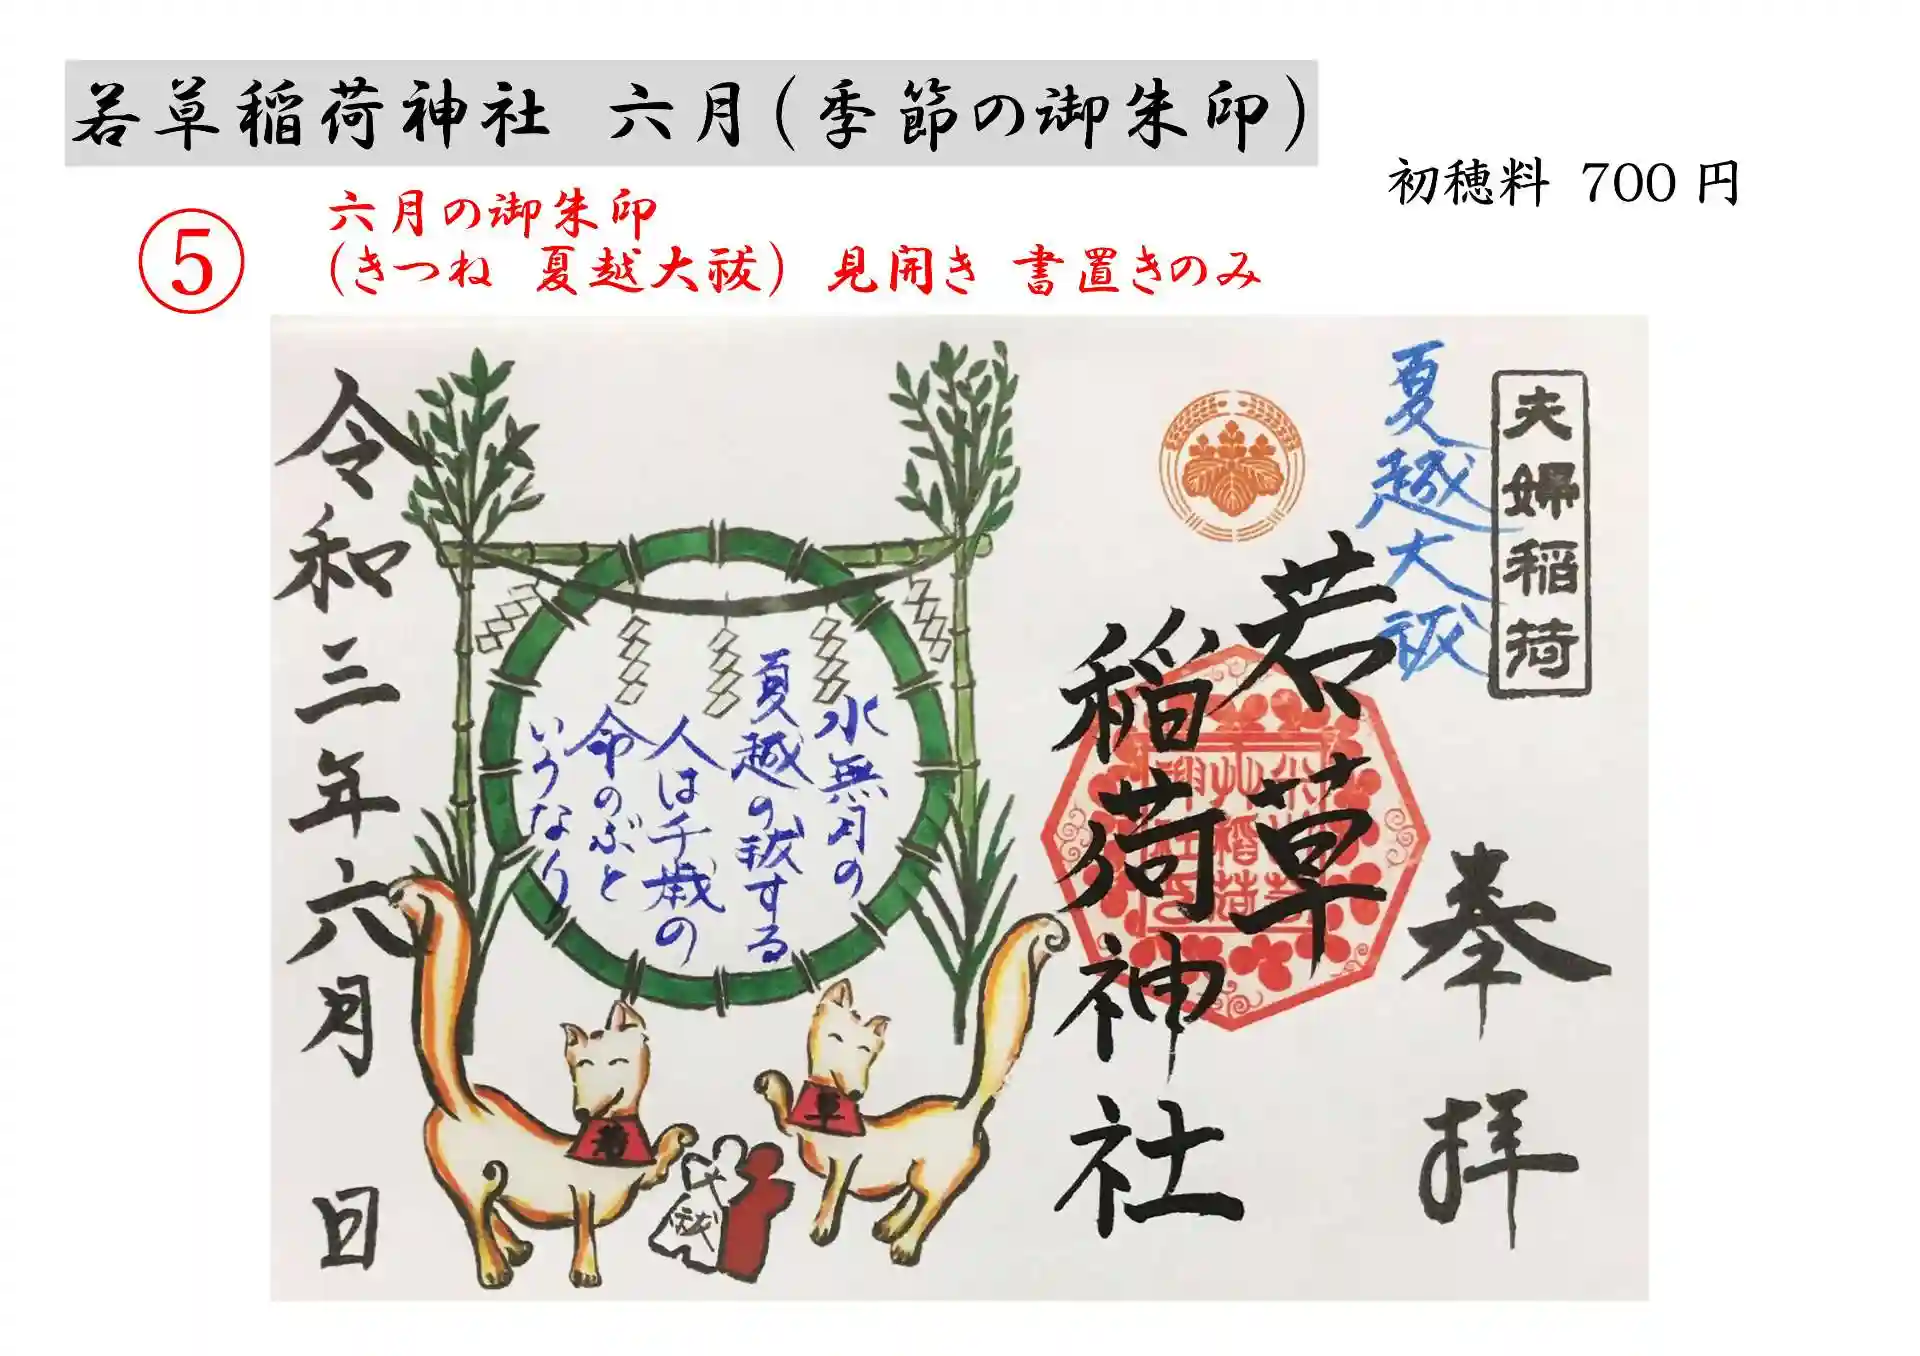 若草稲荷神社 六月(季節の御朱印)
初穂料 700円
⑤
六月の御朱印
(きつね 夏越大祓) 見開き 書置きのみ
夫婦稲荷
夏越大祓
奉拝
若草
稲荷神社
水無月の
夏越の祓する
人は千歳の
命のぶと
いうなり
令和三年六月 日
草